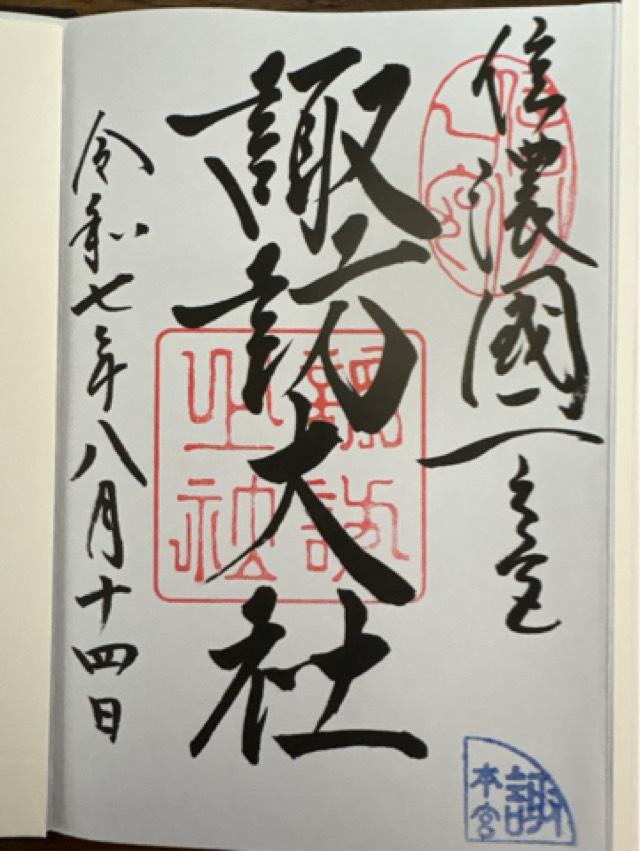 信濃國一之宮
諏訪大社
令和七年八月十四日
諏
本宮